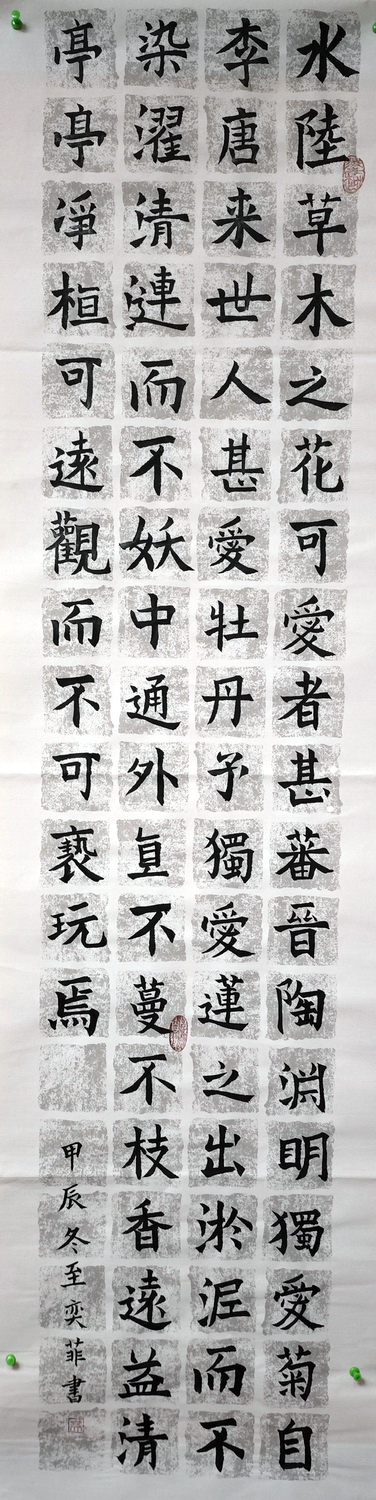 水陸草木之花可愛者甚蕃晉陶渊明獨愛菊自
李唐来世人甚愛牡丹予獨愛蓮之出淤泥而不
染濯清漣而不妖中通外直不蔓不枝香遠益清
亭亭淨植可遠觀而不可褻玩焉
甲辰冬至奕菲書